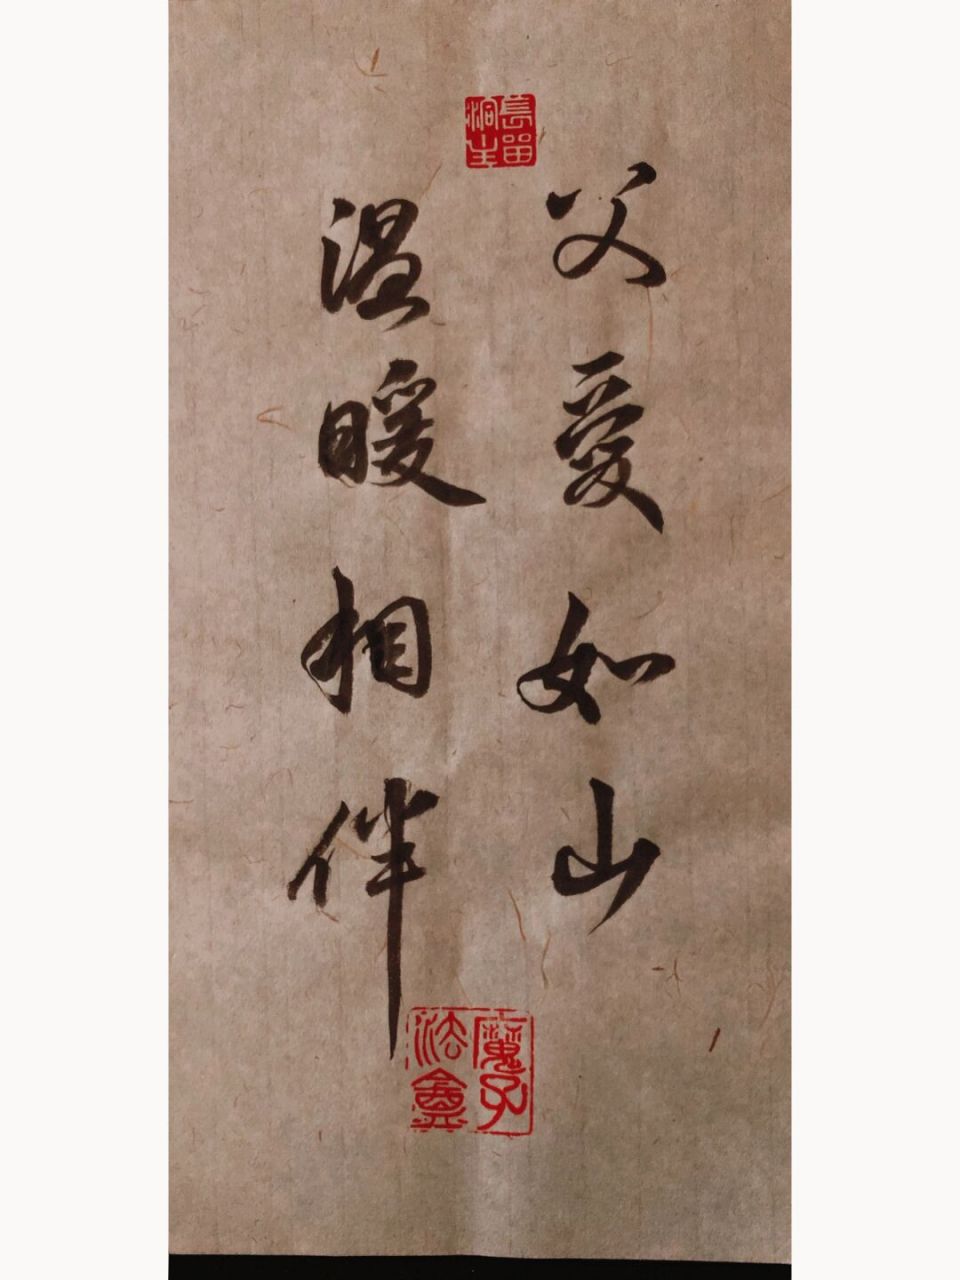 父愛如山
温暖相伴